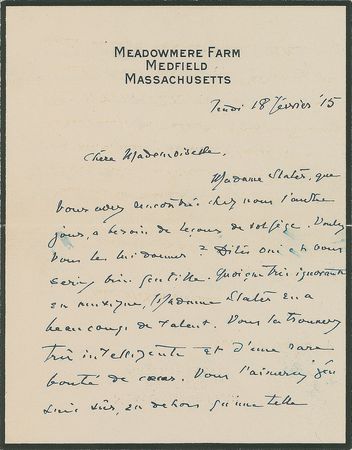 MEADOWMERE FARM
MEDFIELD
MASSACHUSETTS
Jeudi 18 février '15
Chère Mademoiselle,
Madame Slater, que
vous avez rencontrée chez nous l'autre
jour, a besoin de leçons de solfège. Voulez
vous les lui donner ? Dites oui et vous
serez bien gentille. Quoique très ignorante
en musique, Madame Slater en a
beaucoup de talent. Vous la trouverez
très intelligente et d'une rare
bonté de cœur. Vous l'aimerez j'en
suis sûr, en dehors qu'une telle